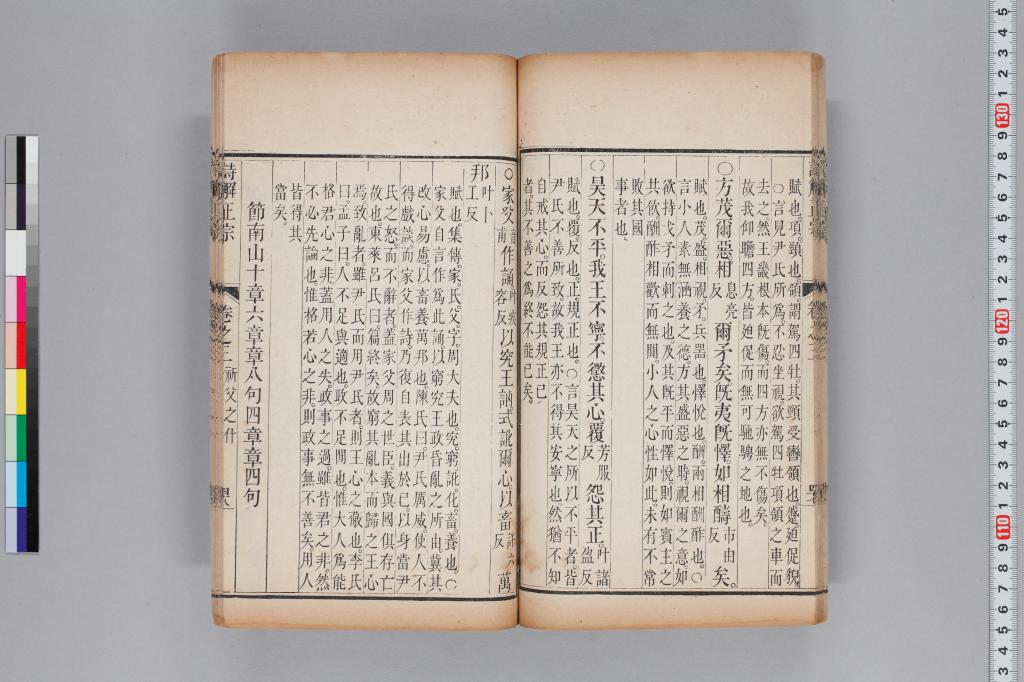 賦也。項。頸也。領。謂駕四牡。其頸受轡領也。蹙。廹促貌。
○言見尹氏所爲。不忍坐視。欲駕四牡項領之車而
去之。然王畿根本旣傷。而四方亦無不傷矣。
故我仰瞻四方。皆廹促而無可馳騁之地也。
○方茂爾惡。相息亮反爾矛矣。旣夷旣懌。如相醻市由反矣。
賦也。茂。盛。相。視。矛。兵噐也。懌。悅也。酬。兩相酬酢也。○
言小人素無涵養之德。方其盛惡之時。視爾之意。如
欲持戈矛而刺之也。及其旣平而懌悅。則如賓主之
共飲酬酢相歡而無間。小人之心性如此。未有不常
敗其國
事者也。
○昊天不平。我王不寧。不懲其心。覆芳服反怨其正叶諸盈反
賦也。覆。反也。正。規正也。○言昊天之所以不平者。皆
尹氏不善所致。故我王亦不得其安寧也。然猶不知
自戒其心。而反怨其規正已
者。其不善之爲終不能已矣。
○家父音甫作誦叶疾容反以究王訩式訛爾心以畜許六反萬
邦叶卜工反
賦也。集傳。家。氏。父。字。周大夫也。究。窮。訛。化。畜。養也。○
家父自言作爲此誦。以窮究王政昏亂之所由。冀其
改心易慮。以畜養萬邦也。陳氏曰。尹氏厲威。使人不
得戲談。而家父作詩。乃復自表其出於已。以身當尹
氏之怒。而不辭者。蓋家父周之世臣。義與國俱存亡
故也。東萊呂氏曰。篇終矣。故窮其亂本。而歸之王心
焉。致亂者。雖尹氏。而用尹氏者。則王心之蔽也。李氏
曰。孟子曰。人不足與適也。政不足閒也。惟大人爲能
格君心之非。蓋用人之失。政事之過。雖皆君之非。然
不必先論也。惟格君心之非。則政事無不善矣。用人
皆得其
當矣。
節南山十章六章章八句四章章四句
詩解正宗 卷之三 祈父之什